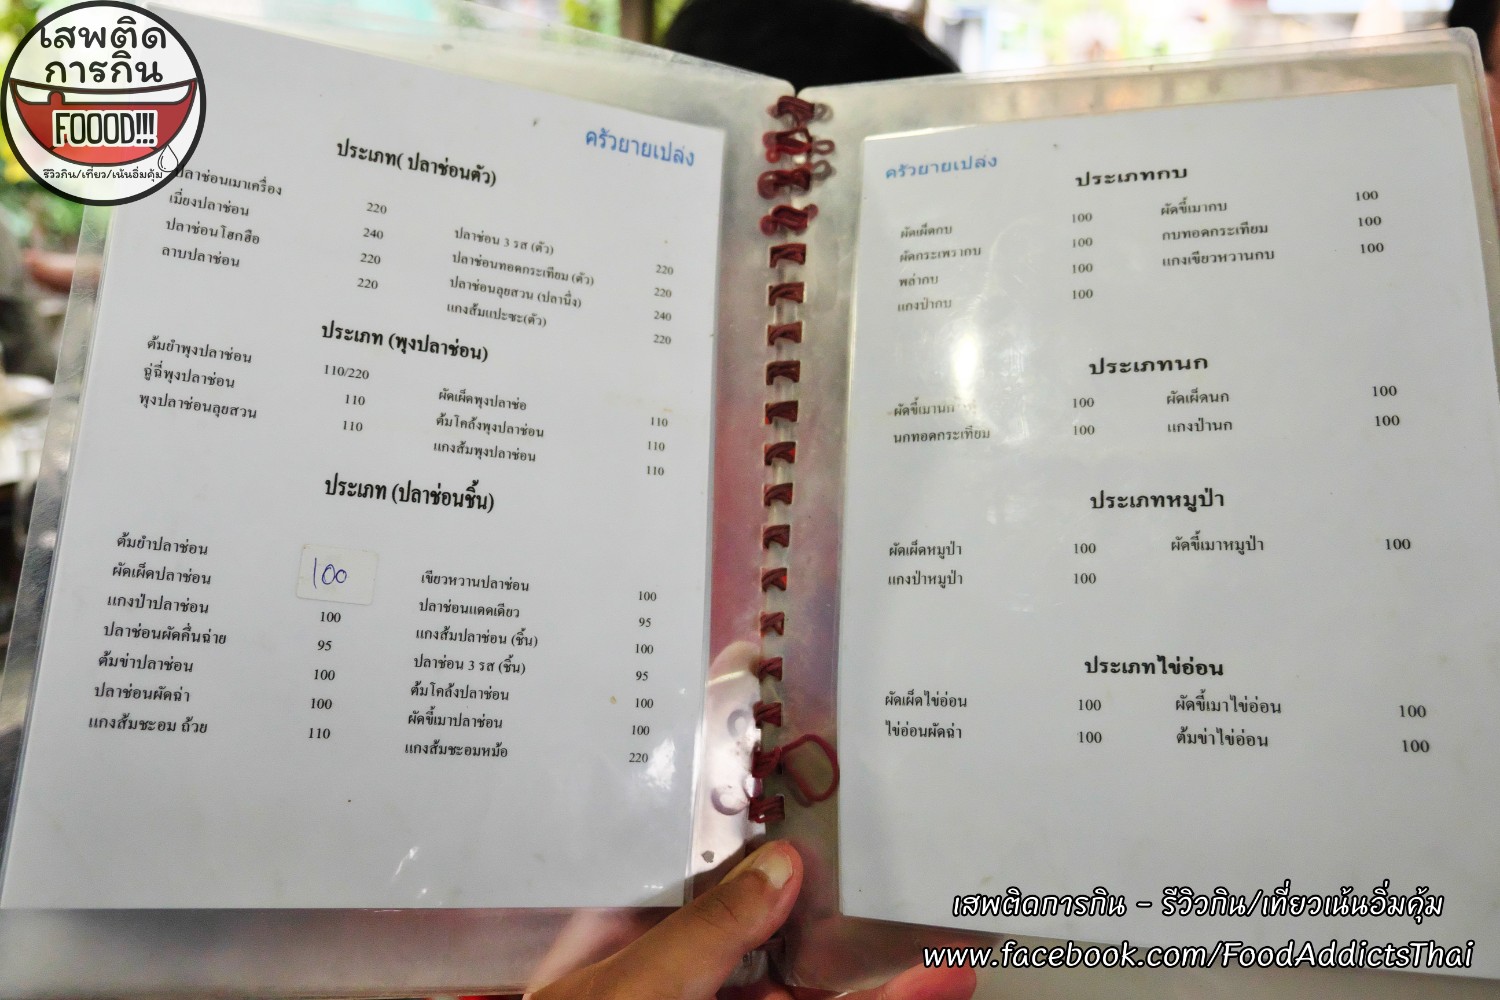 เสพติด
การกิน
FOOOD!!!
รีวิวกิน/เที่ยว/เน้นอิ่มคุ้ม
ครัวยายเปล่ง
ประเภท( ปลาช่อนตัว)
ปลาช่อนเมาเครื่อง 220
เมี่ยงปลาช่อน 240
ปลาช่อนโฮกฮือ 220
ลาบปลาช่อน 220
ปลาช่อน 3 รส (ตัว) 220
ปลาช่อนทอดกระเทียม (ตัว) 220
ปลาช่อนลุยสวน (ปลานึ่ง) 240
แกงส้มแปะซะ(ตัว) 220
ประเภท (พุงปลาช่อน)
ต้มยำพุงปลาช่อน 110/220
ฉู่ฉี่พุงปลาช่อน 110
พุงปลาช่อนลุยสวน 110
ผัดเผ็ดพุงปลาช่อ 110
ต้มโคล้งพุงปลาช่อน 110
แกงส้มพุงปลาช่อน 110
ประเภท (ปลาช่อนชิ้น)
ต้มยำปลาช่อน 100
ผัดเผ็ดปลาช่อน
แกงป่าปลาช่อน 100
ปลาช่อนผัดคื่นฉ่าย 95
ต้มข่าปลาช่อน 100
ปลาช่อนผัดฉ่า 100
แกงส้มชะอม ถ้วย 110
เขียวหวานปลาช่อน 100
ปลาช่อนแดดเดียว 95
แกงส้มปลาช่อน (ชิ้น) 100
ปลาช่อน 3 รส (ชิ้น) 95
ต้มโคล้งปลาช่อน 100
ผัดขี้เมาปลาช่อน 100
แกงส้มชะอมหม้อ 220
ครัวยายเปล่ง
ประเภทกบ
ผัดเผ็ดกบ 100 ผัดขี้เมากบ 100
ผัดกระเพรากบ 100 กบทอดกระเทียม 100
พล่ากบ 100 แกงเขียวหวานกบ 100
แกงป่ากบ 100
ประเภทนก
ผัดขี้เมานก 100 ผัดเผ็ดนก 100
นกทอดกระเทียม 100 แกงป่านก 100
ประเภทหมูป่า
ผัดเผ็ดหมูป่า 100 ผัดขี้เมาหมูป่า 100
แกงป่าหมูป่า 100
ประเภทไข่อ่อน
ผัดเผ็ดไข่อ่อน 100 ผัดขี้เมาไข่อ่อน 100
ไข่อ่อนผัดฉ่า 100 ต้มข่าไข่อ่อน 100
เสพติดการกิน - รีวิวกิน/เที่ยวเน้นอิ่มคุ้ม
www.facebook.com/FoodAddictsThai